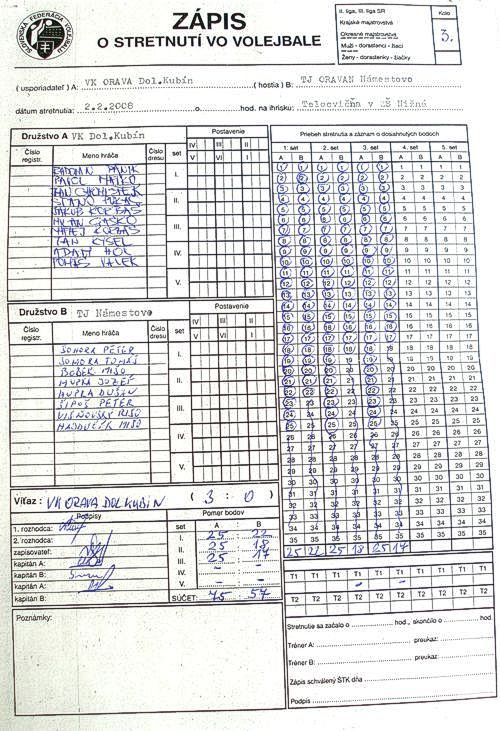 SLOVENSKÁ FEDERÁCIA VOLEJBALU
ZÁPIS
O STRETNUTÍ VO VOLEJBALE
II. liga, III. liga SR
Krajské majstrovstvá
Okresné majstrovstvá
Muži - dorastenci - žiaci
Ženy - dorastenky - žiačky
Kolo
3.
(usporiadateľ) A: VK ORAVA Dol.Kubín (hostia) B: TJ ORAVAN Námestovo
dátum stretnutia: 2.2.2008 o hod. na ihrisku: Telocvična v ZŠ Nižná
Družstvo A VK Dol.Kubín
Postavenie
Číslo registr. Meno hráča Číslo dresu set
IV III II
V VI I
I.
II.
III.
IV.
V.
RADOMAN PANIK
PAVOL MATKO
JAKUB KORBAŠ
MATEJ KORBAŠ
JAN KYSEL
ADAM HOL
TOMÁŠ VALEK
Družstvo B TJ Námestovo
Postavenie
Číslo registr. Meno hráča Číslo dresu set
IV III II
V VI I
I.
II.
III.
IV.
V.
SOMORA PETER
SOMORA TOMÁŠ
BOBEK MIŠO
HUPKA JOZEF
HUPKA DUŠAN
ŠIPOŠ PETER
VIŠŇOVSKÝ MIŠO
Víťaz: VK ORAVA DOL.KUBÍN ( 3 : 0 )
Podpisy
1. rozhodca:
2. rozhodca:
zapisovateľ:
kapitán A:
kapitán B:
kapitán A:
kapitán B:
Pomer bodov
set A B
I. 25 : 22
II. 25 : 18
III. 25 : 17
IV. - : -
V. - : -
SÚČET: 75 : 57
Poznámky:
Priebeh stretnutia a záznam o dosiahnutých bodoch
1. set 2. set 3. set 4. set 5. set
A B A B A B A B A B
1 1 1 1 1 1 1 1 1 1
2 2 2 2 2 2 2 2 2 2
3 3 3 3 3 3 3 3 3 3
4 4 4 4 4 4 4 4 4 4
5 5 5 5 5 5 5 5 5 5
6 6 6 6 6 6 6 6 6 6
7 7 7 7 7 7 7 7 7 7
8 8 8 8 8 8 8 8 8 8
9 9 9 9 9 9 9 9 9 9
10 10 10 10 10 10 10 10 10 10
11 11 11 11 11 11 11 11 11 11
12 12 12 12 12 12 12 12 12 12
13 13 13 13 13 13 13 13 13 13
14 14 14 14 14 14 14 14 14 14
15 15 15 15 15 15 15 15 15 15
16 16 16 16 16 16 16 16 16 16
17 17 17 17 17 17 17 17 17 17
18 18 18 18 18 18 18 18 18 18
19 19 19 19 19 19 19 19 19 19
20 20 20 20 20 20 20 20 20 20
21 21 21 21 21 21 21 21 21 21
22 22 22 22 22 22 22 22 22 22
23 23 23 23 23 23 23 23 23 23
24 24 24 24 24 24 24 24 24 24
25 25 25 25 25 25 25 25 25 25
26 26 26 26 26 26 26 26 26 26
27 27 27 27 27 27 27 27 27 27
28 28 28 28 28 28 28 28 28 28
29 29 29 29 29 29 29 29 29 29
30 30 30 30 30 30 30 30 30 30
31 31 31 31 31 31 31 31 31 31
32 32 32 32 32 32 32 32 32 32
33 33 33 33 33 33 33 33 33 33
34 34 34 34 34 34 34 34 34 34
35 35 35 35 35 35 35 35 35 35
25 22 25 18 25 17
T1 T1 T1 T1 T1 T1 T1 T1 T1 T1
T2 T2 T2 T2 T2 T2 T2 T2 T2 T2
Stretnutie sa začalo o hod., skončilo o hod.
Tréner A: preukaz:
Tréner B: preukaz:
Zápis schválený ŠTK dňa
Podpis